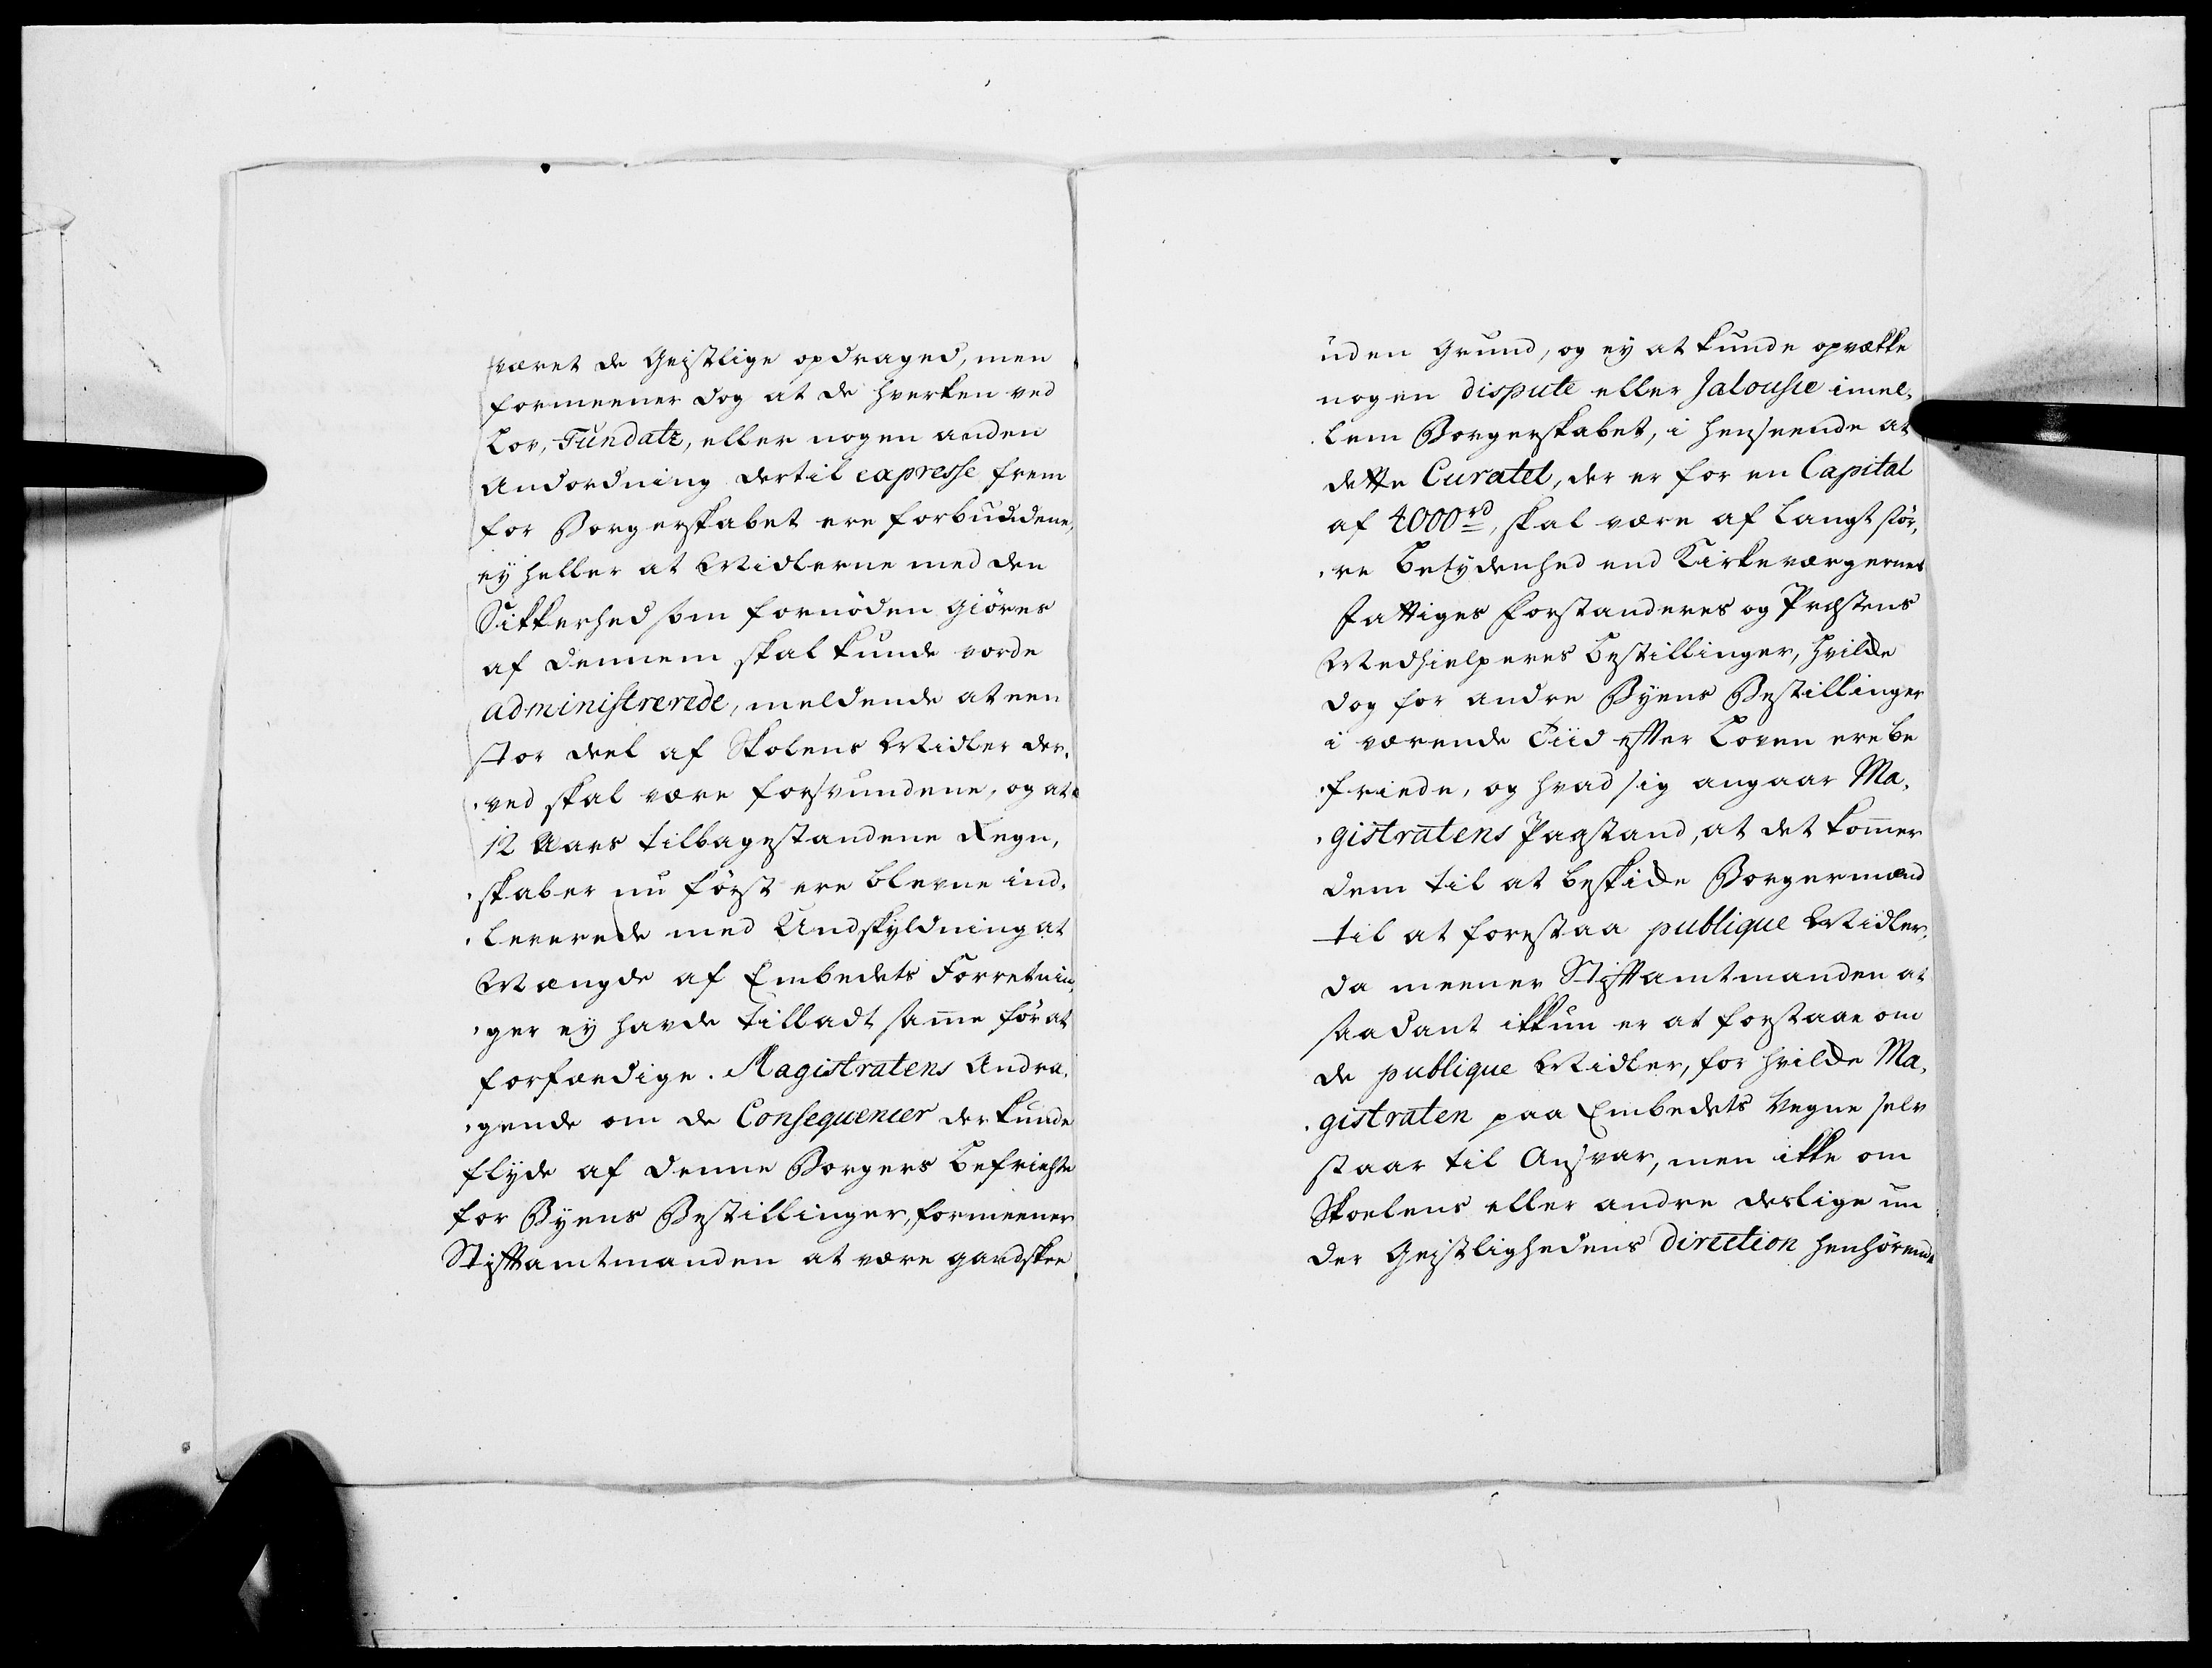 været de Geistlige opdraged, men
formeener dog at de hverken ved
Lov, Fundatz, eller nogen anden
Andordning dertil expresse frem
for Borgerskabet ere forbundene,
ey heller at Midlerne med den
Sikkerhed som fornöden giöres
af dennem skal kunde vorde
administrerede, meldende at een
stor deel af Skolens Midler der,
ved skal være forsvundene, og at
12 Aars tilbagestandene Regn,
skaber nu först ere blevne ind,
leverede med Undskyldning at
Mængde af Embedets Forretnin,
ger ey havde tilladt samme för at
forfærdige. Magistratens Andra,
gende om de Consequencer der kunde
flyde af denne Borgers befrielse
for Byens Bestillinger, formeener
Stiftamtmanden at være gandske
uden Grund, og ey at kunde opvække
nogen dispute eller Jalousie imel,
lem Borgerskabet, i henseende at
dette Curatel, der er for en Capital
af 4000 rd, skal være af langt stör,
re betydenhed end Kirkeværgernes
Fattiges Forstanderes og Præstens
Medhielperes bestillinger, hvilke
dog for andre Byens Bestillinger
i værende Tiid efter Loven ere be
friede, og hvad sig angaar Ma,
gistratens Paastand, at det kommer
dem til at beskikke Borgermænd
til at forestaa publique Midler,
da meener Stiftamtmanden at
saadant ikkun er at forstaae om
de publique Midler, for hvilke Ma,
gistraten paa Embedets Vegne selv
staar til Ansvar, men ikke om
Skoelens eller andre deslige un
der Geistlighedens direction henhörende